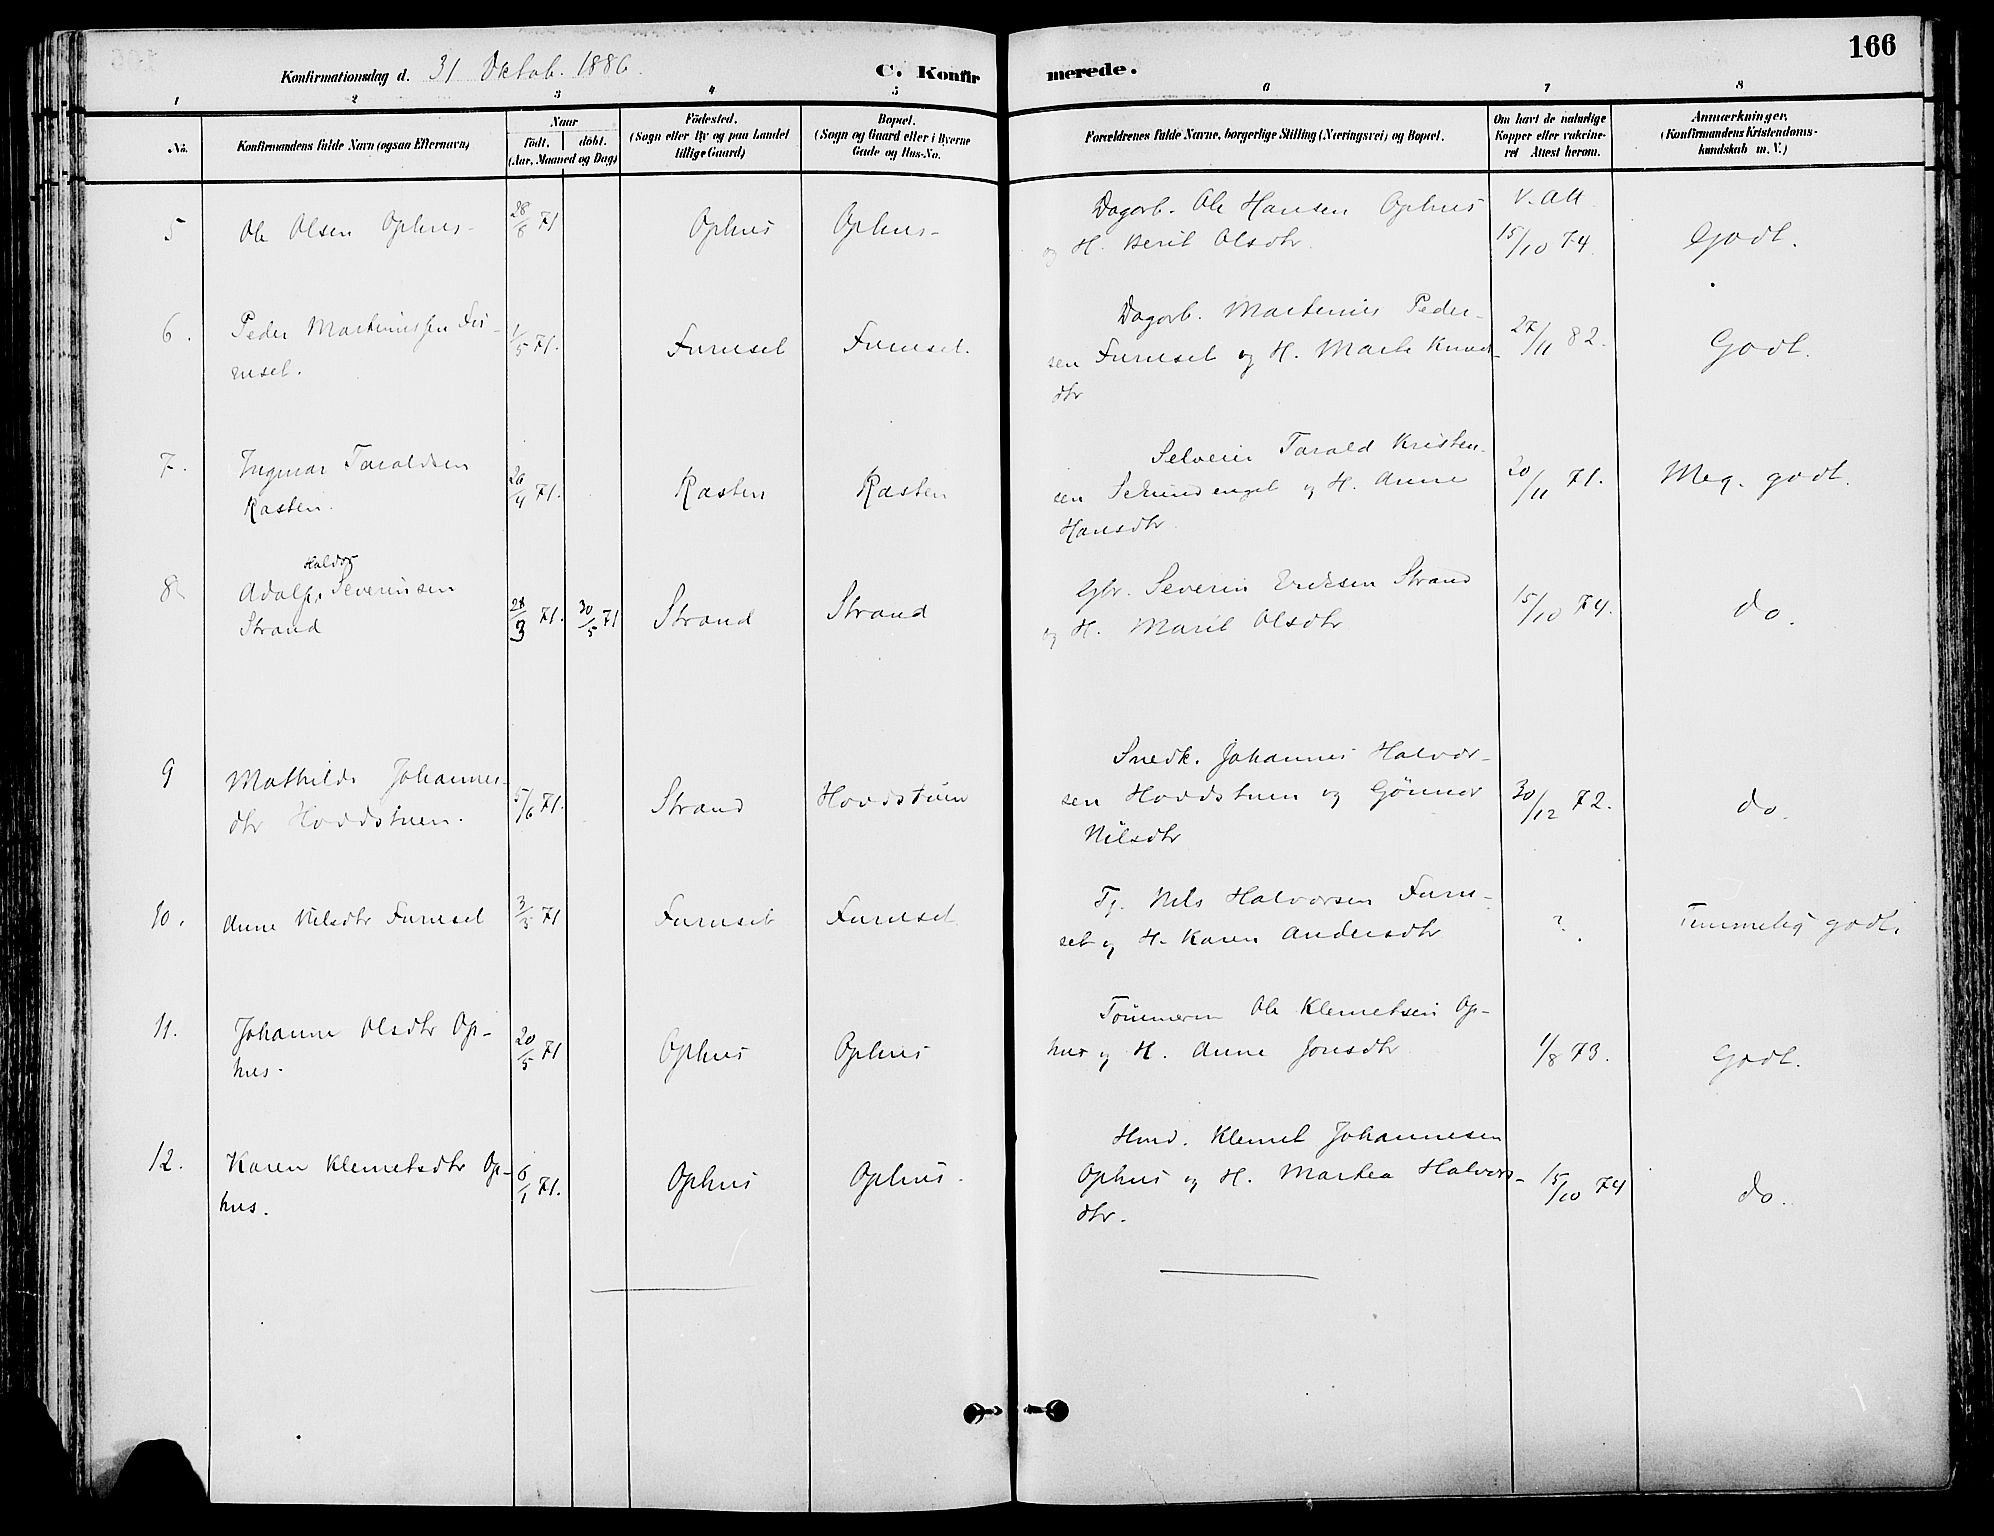 166
Konfirmationsdag d. 31 Oktob. 1886.
C. Konfirmerede.
1 2 3 4 5 6 7 8
No.
Konfirmandens fulde Navn (ogsaa Efternavn)
Naar
Födt. döbt.
(Aar, Maaned og Dag)
Födested.
(Sogn eller By og paa Landet
tillige Gaard)
Bopæl.
(Sogn og Gaard eller i Byerne
Gade og Hus-No.
Forældrenes fulde Navne, borgerlige Stilling (Næringsvei) og Bopæl.
Om havt de naturlige
Kopper eller vakcine-
ret Attest herom.
Anmærkninger,
(Konfirmandens Kristendoms-
kundskab m. V.)
5 Ole Olsen Ophus 28/8 71 Ophus Ophus Dagarb. Ole Hansen Ophus V. Att.
og H. Berit Olsdtr. 15/10 74 Godt.
6. Peder Martinussen Fur-
uset. 1/5 71. Furuset Furuset. Dagarb. Martinus Peder-
sen Furuset og H. Marte Knuds-
dtr 27/11 82. Godt.
7. Ingmar Taraldsen
Rasten. 26/4 71. Rasten Rasten Selveier Tarald Kristen-
sen og H. Anne
Hansdtr. 20/11 71. Meg. godt.
8 Adolf Halvor Severinsen
Strand 28/3 71. 30/5 71 Strand Strand Gbr. Severin Eriksen Strand
og H. Marit Olsdtr 15/10 74. do.
9 Mathilde Johannes-
dtr Hovdstuen. 5/6 71. Strand Hovdstuen Snedk. Johannes Halvor-
sen Hovdstuen og Gönnor
Nilsdtr 30/12 72. do.
10. Anne Nilsdtr Furuset 3/5 71 Furuset Furuset Tj. Nils Halvorsen Furu-
set og H. Karen Andersdtr ? Temmelig godt.
11. Johanne Olsdtr Op-
hus. 20/5 71 Ophus Ophus Tömmerm Ole Klemetsen Op-
hus og H. Anne Jonsdtr 1/8 73. Godt.
12. Karen Klemetsdtr Op-
hus. 6/1 71. Ophus Ophus. Hmd. Klemet Johannesen
Ophus og H. Martea Halvors-
dtr. 15/10 74 do.